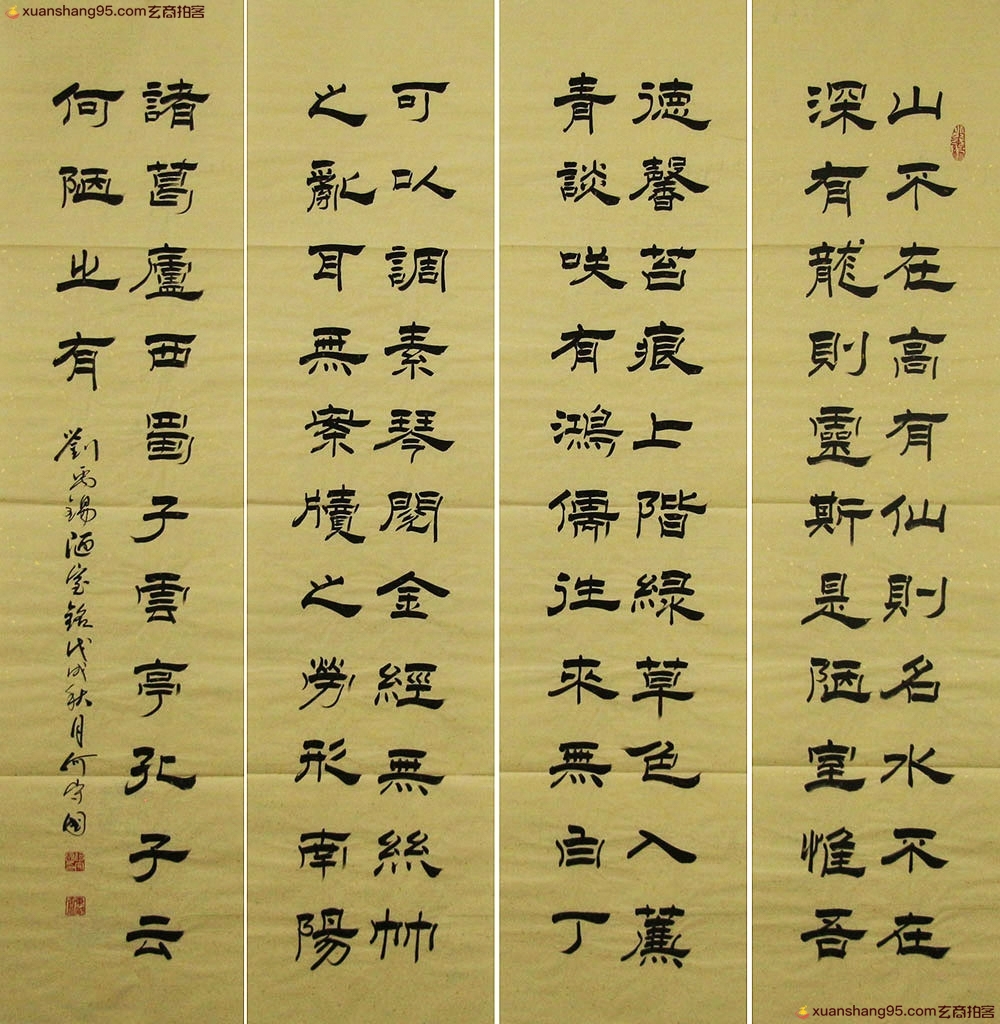 xuanshang95.com玄商拍客
山不在高有仙則名水不在
深有龍則靈斯是陋室惟吾
徳馨苔痕上階緑草色入簾
青談咲有鴻儒往來無白丁
可以調素琴閲金經無絲竹
之亂耳無案牘之勞形南陽
諸葛廬西蜀子雲亭孔子云
何陋之有
劉禹錫陋室銘戊戌秋月何守國
xuanshang95.com玄商拍客